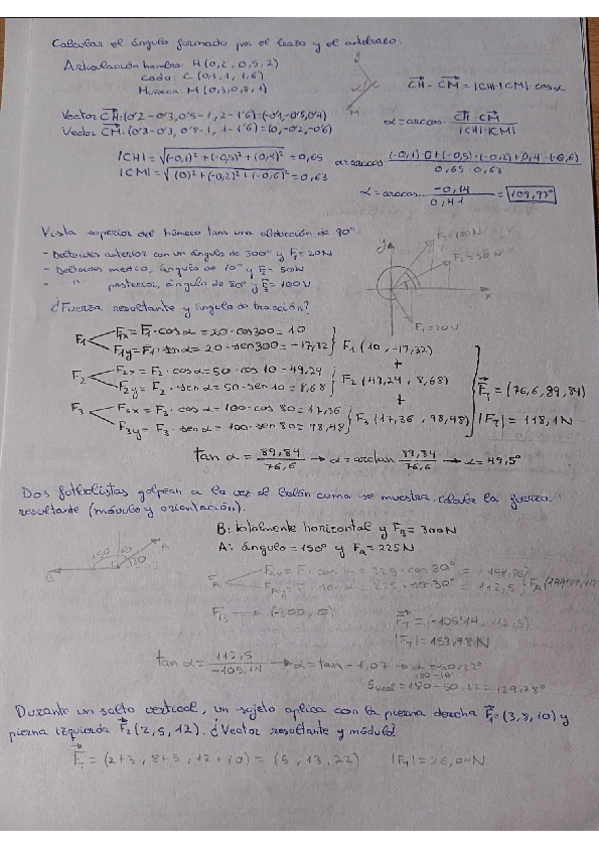 Calcular el ángulo formado por el brazo y el antebrazo.
Articulación hombro: H(0,2, 0,5, 2)
Codo: C(0,3, 1, 1,6)
Muñeca: M(0,3, 0,8, 1)
CH · CM = |CH|·|CM|·cos α
Vector CH: (0'2-0'3, 0'5-1, 2-1'6) = (-0'1, -0'5, 0'4)
Vector CM: (0'3-0'3, 0'8-1, 1-1'6) = (0, -0'2, -0'6)
α = arccos CH · CM / |CH|·|CM|
|CH| = √(-0,1)²+(-0,5)²+(0,4)² = 0,65
|CM| = √(0)²+(-0,2)²+(-0,6)² = 0,63
α = arccos (-0,1)·0+(-0,5)·(-0,2)+0,4·(-0,6) / 0,65·0,63
α = arccos -0,14 / 0,41 = 109,97°
Vista superior del húmero tras una abducción de 90°
- Deltoides anterior con un ángulo de 300° y F₁ = 20N
- Deltoides medio, ángulo de 10° y F₂ = 50N
- " posterior, ángulo de 80° y F₃ = 100N
¿Fuerza resultante y ángulo de tracción?
y
x
F₃=100N
F₂=50N
F₁=20N
F₁
F₁x = F₁·cos α = 20·cos 300 = 10
F₁y = F₁·sen α = 20·sen 300 = -17,32
F₁ (10, -17,32)
+
F₂
F₂x = F₂·cos α = 50·cos 10 = 49,24
F₂y = F₂·sen α = 50·sen 10 = 8,68
F₂ (49,24, 8,68)
+
F₃
F₃x = F₃·cos α = 100·cos 80 = 17,36
F₃y = F₃·sen α = 100·sen 80 = 98,48
F₃ (17,36, 98,48)
F_T = (76,6, 89,84)
|F_T| = 118,1N
tan α = 89,84 / 76,6 → α = arctan 89,84 / 76,6 → α = 49,5°
Dos futbolistas golpean a la vez el balón como se muestra. Calcula la fuerza
resultante (módulo y orientación).
B: totalmente horizontal y F_B = 300N
A: ángulo = 150° y F_A = 225N
A
B
F_A
F_Ax = F·cos α = 225·cos 30° = 194,86
F_Ay = F· = 225·sen 30° = 112,5
F_B → (-300, 0)
F_T = (-105'14, 112,5)
|F_T| = 153,98N
tan α = 112,5 / -105,14 → α = tan -1,07 → α = 50,22°
= 180-50,22 = 129,78°
Durante un salto vertical, un sujeto aplica con la pierna derecha F₁ = (3,8,10) y
pierna izquierda F₂(2,5,12). ¿Vector resultante y módulo?
F = (2+3, 8+5, 12+10) = (5, 13, 22) |F_T| = 26,04N